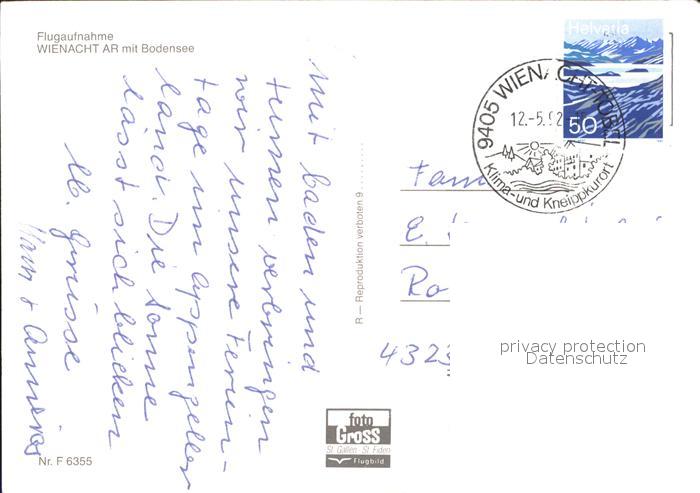 Flugaufnahme
WIENACHT AR mit Bodensee
Mit baden und
turnen verbringen
wir unsere Ferien-
tage im Appenzeller
land. Die Sonne
lässt sich blicken
lb. Grüsse
+
Nr. F 6355
R — Reproduktion verboten 9
foto
Gross
St. Gallen St. Fiden
Flugbild
Helvetia
50
9405 WIENACHT-TOBEL
12.-5.92
Klima- und Kneippkurort
Fam
E.
Ro
4323
privacy protection
Datenschutz